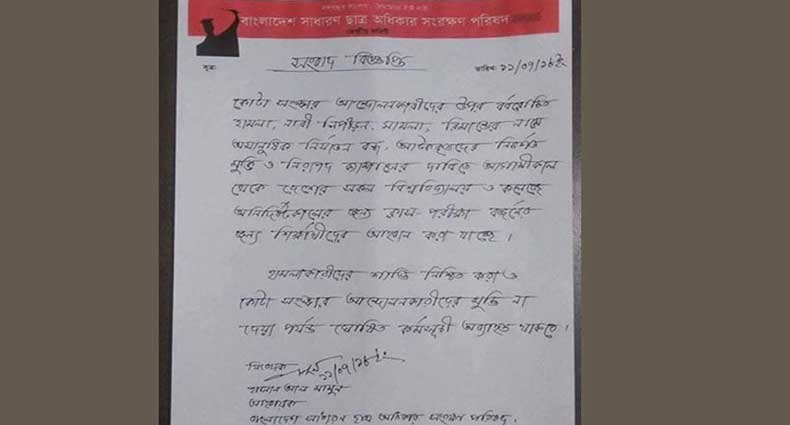 বাংলাদেশ সাধারণ ছাত্র অধিকার সংরক্ষণ পরিষদ
কেন্দ্রীয় কমিটি
সংবাদ বিজ্ঞপ্তি
সূত্র: তারিখ: ১১/০৭/১৮ইং
কোটা সংস্কার আন্দোলনকারীদের উপর বর্বরোচিত
হামলা, নারী নিপীড়ন, মামলা, রিমান্ডের নামে
অমানুষিক নির্যাতন বন্ধ, আটককৃতদের নিঃশর্ত
মুক্তি ও নিরাপদ ক্যাম্পাসের দাবিতে আগামীকাল
থেকে দেশের সকল বিশ্ববিদ্যালয় ও কলেজে
অনির্দিষ্টকালের জন্য ক্লাস-পরীক্ষা বর্জনের
জন্য শিক্ষার্থীদের আহবান করা যাচ্ছে।
হামলাকারীদের শাস্তি নিশ্চিত করা ও
কোটা সংস্কার আন্দোলনকারীদের মুক্তি না
দেয়া পর্যন্ত ঘোষিত কর্মসূচী অব্যাহত থাকবে।
নিবেদক
১১/০৭/১৮ইং
হাসান আল মামুন
আহবায়ক
বাংলাদেশ সাধারণ ছাত্র অধিকার সংরক্ষণ পরিষদ।